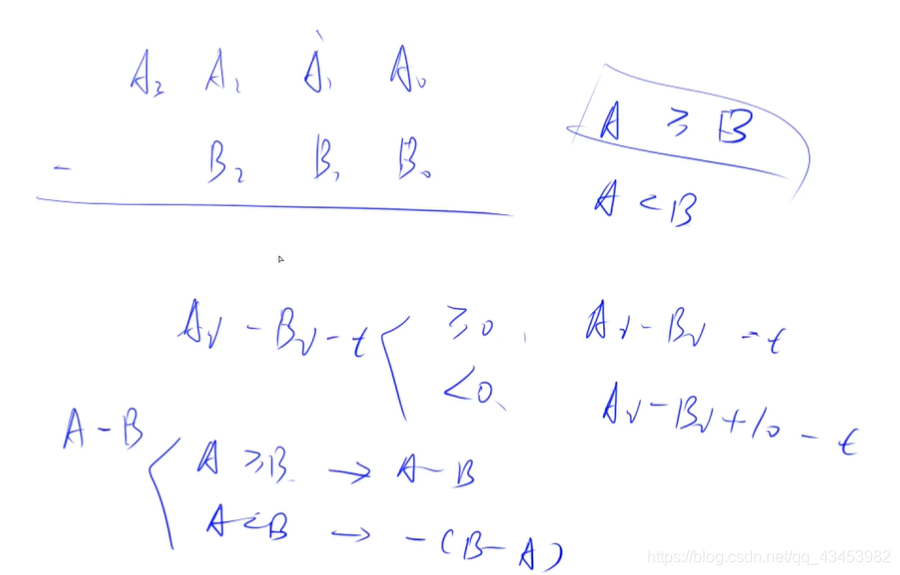 A₃ A₂ A₁ A₀
- B₂ B₁ B₀
A ≥ B
A < B
Aᵢ - Bᵢ - t
≥0, Aᵢ - Bᵢ - t
<0, Aᵢ - Bᵢ + 10 - t
A - B
A ≥ B → A - B
A < B → -(B - A)
https://blog.csdn.net/qq_43453982